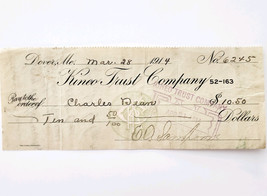 Dover, Me. Mar. 28 1919 No. 6245
Kineo Trust Company 52-163
Pay to the
order of Charles Dean $10.50
Ten and 50/100 Dollars